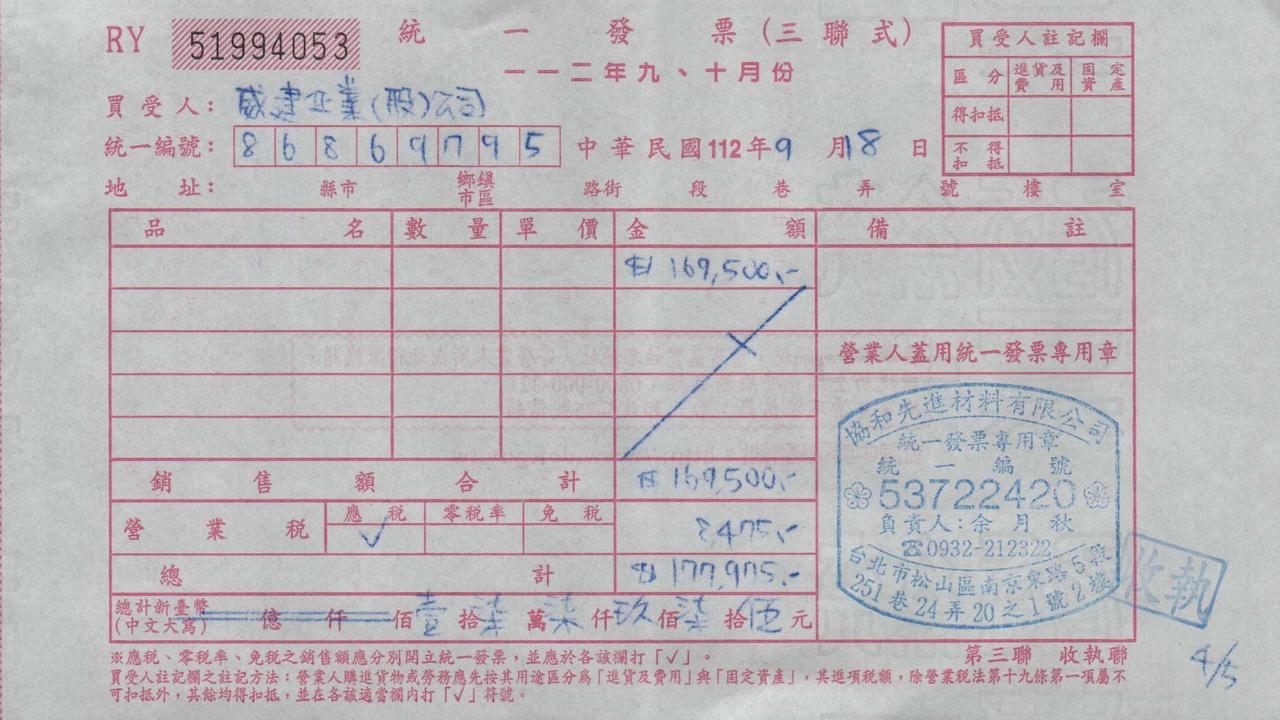 RY 51994053 統一發票(三聯式)
一一二年九、十月份
買受人: 威建企業(股)公司
統一編號: 86869795 中華民國112年9月18日
地址: 縣市 鄉鎮市區 路街 段 巷 弄 號 樓 室
買受人註記欄
區分 進貨及費用 固定資產
得扣抵
不得扣抵
品名 數量 單價 金額 備註
$169,500.-
營業人蓋用統一發票專用章
銷售額合計 $169,500.-
營業稅 應稅 零稅率 免稅 8,475.-
✓
總計 $177,975.-
總計新臺幣(中文大寫) 億 仟 佰壹拾柒萬柒仟玖佰柒拾伍元
協和先進材料有限公司
統一發票專用章
統一編號
53722420
負責人:余月秋
☎0932-212322
台北市松山區南京東路5段
251巷24弄20之1號2樓
收執
※應稅、零稅率、免稅之銷售額應分別開立統一發票,並應於各該欄打「✓」。
第三聯 收執聯
買受人註記欄之註記方法:營業人購進貨物或勞務應先按其用途區分爲「進貨及費用」與「固定資產」,其進項稅額,除營業稅法第十九條第一項屬不
可扣抵外,其餘均得扣抵,並在各該適當欄內打「✓」符號。
4/5